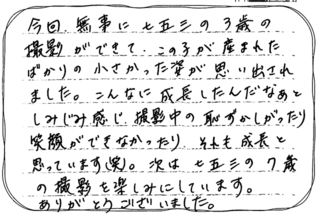 今回、無事に七五三の3歳の
撮影ができて、この子が産まれた
ばかりの小さかった姿が思い出され
ました。こんなに成長したんだなぁと
しみじみ感じ、撮影中の恥ずかしがったり
笑顔ができなかったり それも成長と
思っています(笑)。次は七五三の7歳
の撮影を楽しみにしています。
ありがとうございました。